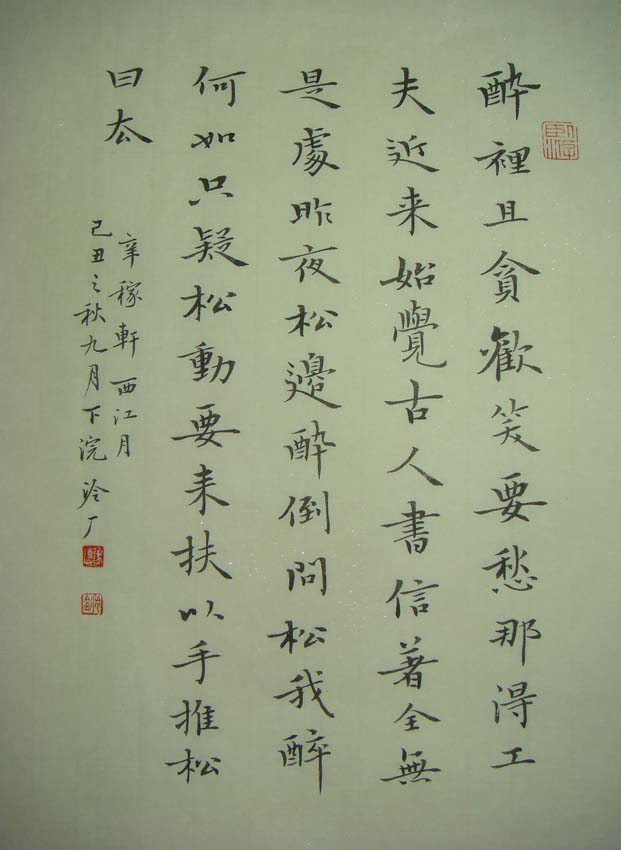 酔裡且貪歡笑要愁那得工
夫近来始覺古人書信著全無
是處昨夜松邊酔倒問松我醉
何如只疑松動要来扶以手推松
曰去
辛稼軒西江月
己丑之秋九月下浣